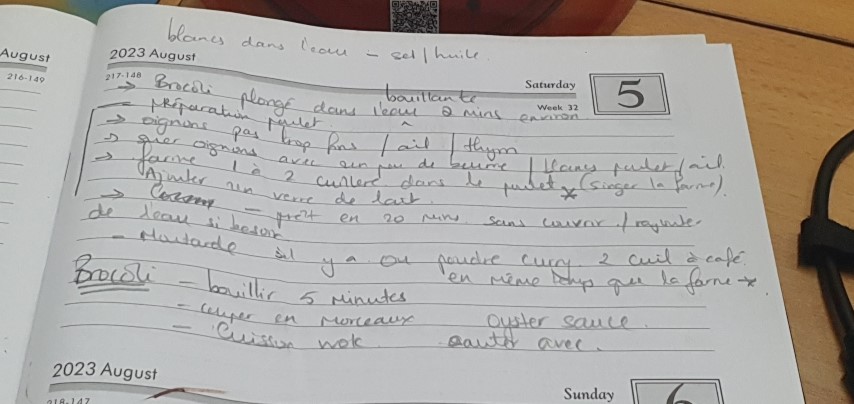 August
216-149
blancs dans l'eau – sel/huile.
2023 August
217-148
Saturday
5
Week 32
→ Brocoli plongé dans l'eau bouillante 2 mins environ
– Préparation poulet
→ oignons pas trop fins / ail / thym
→ suer oignons avec un peu de beurre / blancs poulet / ail.
→ farine 1 à 2 cuillere dans le poulet * (singer la farine).
Ajouter un verre de lait.
→ – prêt en 20 mins sans couvrir / rajouter
de l'eau si besoin
– Moutarde si y a ou poudre curry 2 cuil à café.
en même temps que la farine *
Brocoli – bouillir 5 minutes
– couper en morceaux oyster sauce.
– Cuisson wok sauter avec.
2023 August
218-147
Sunday
6